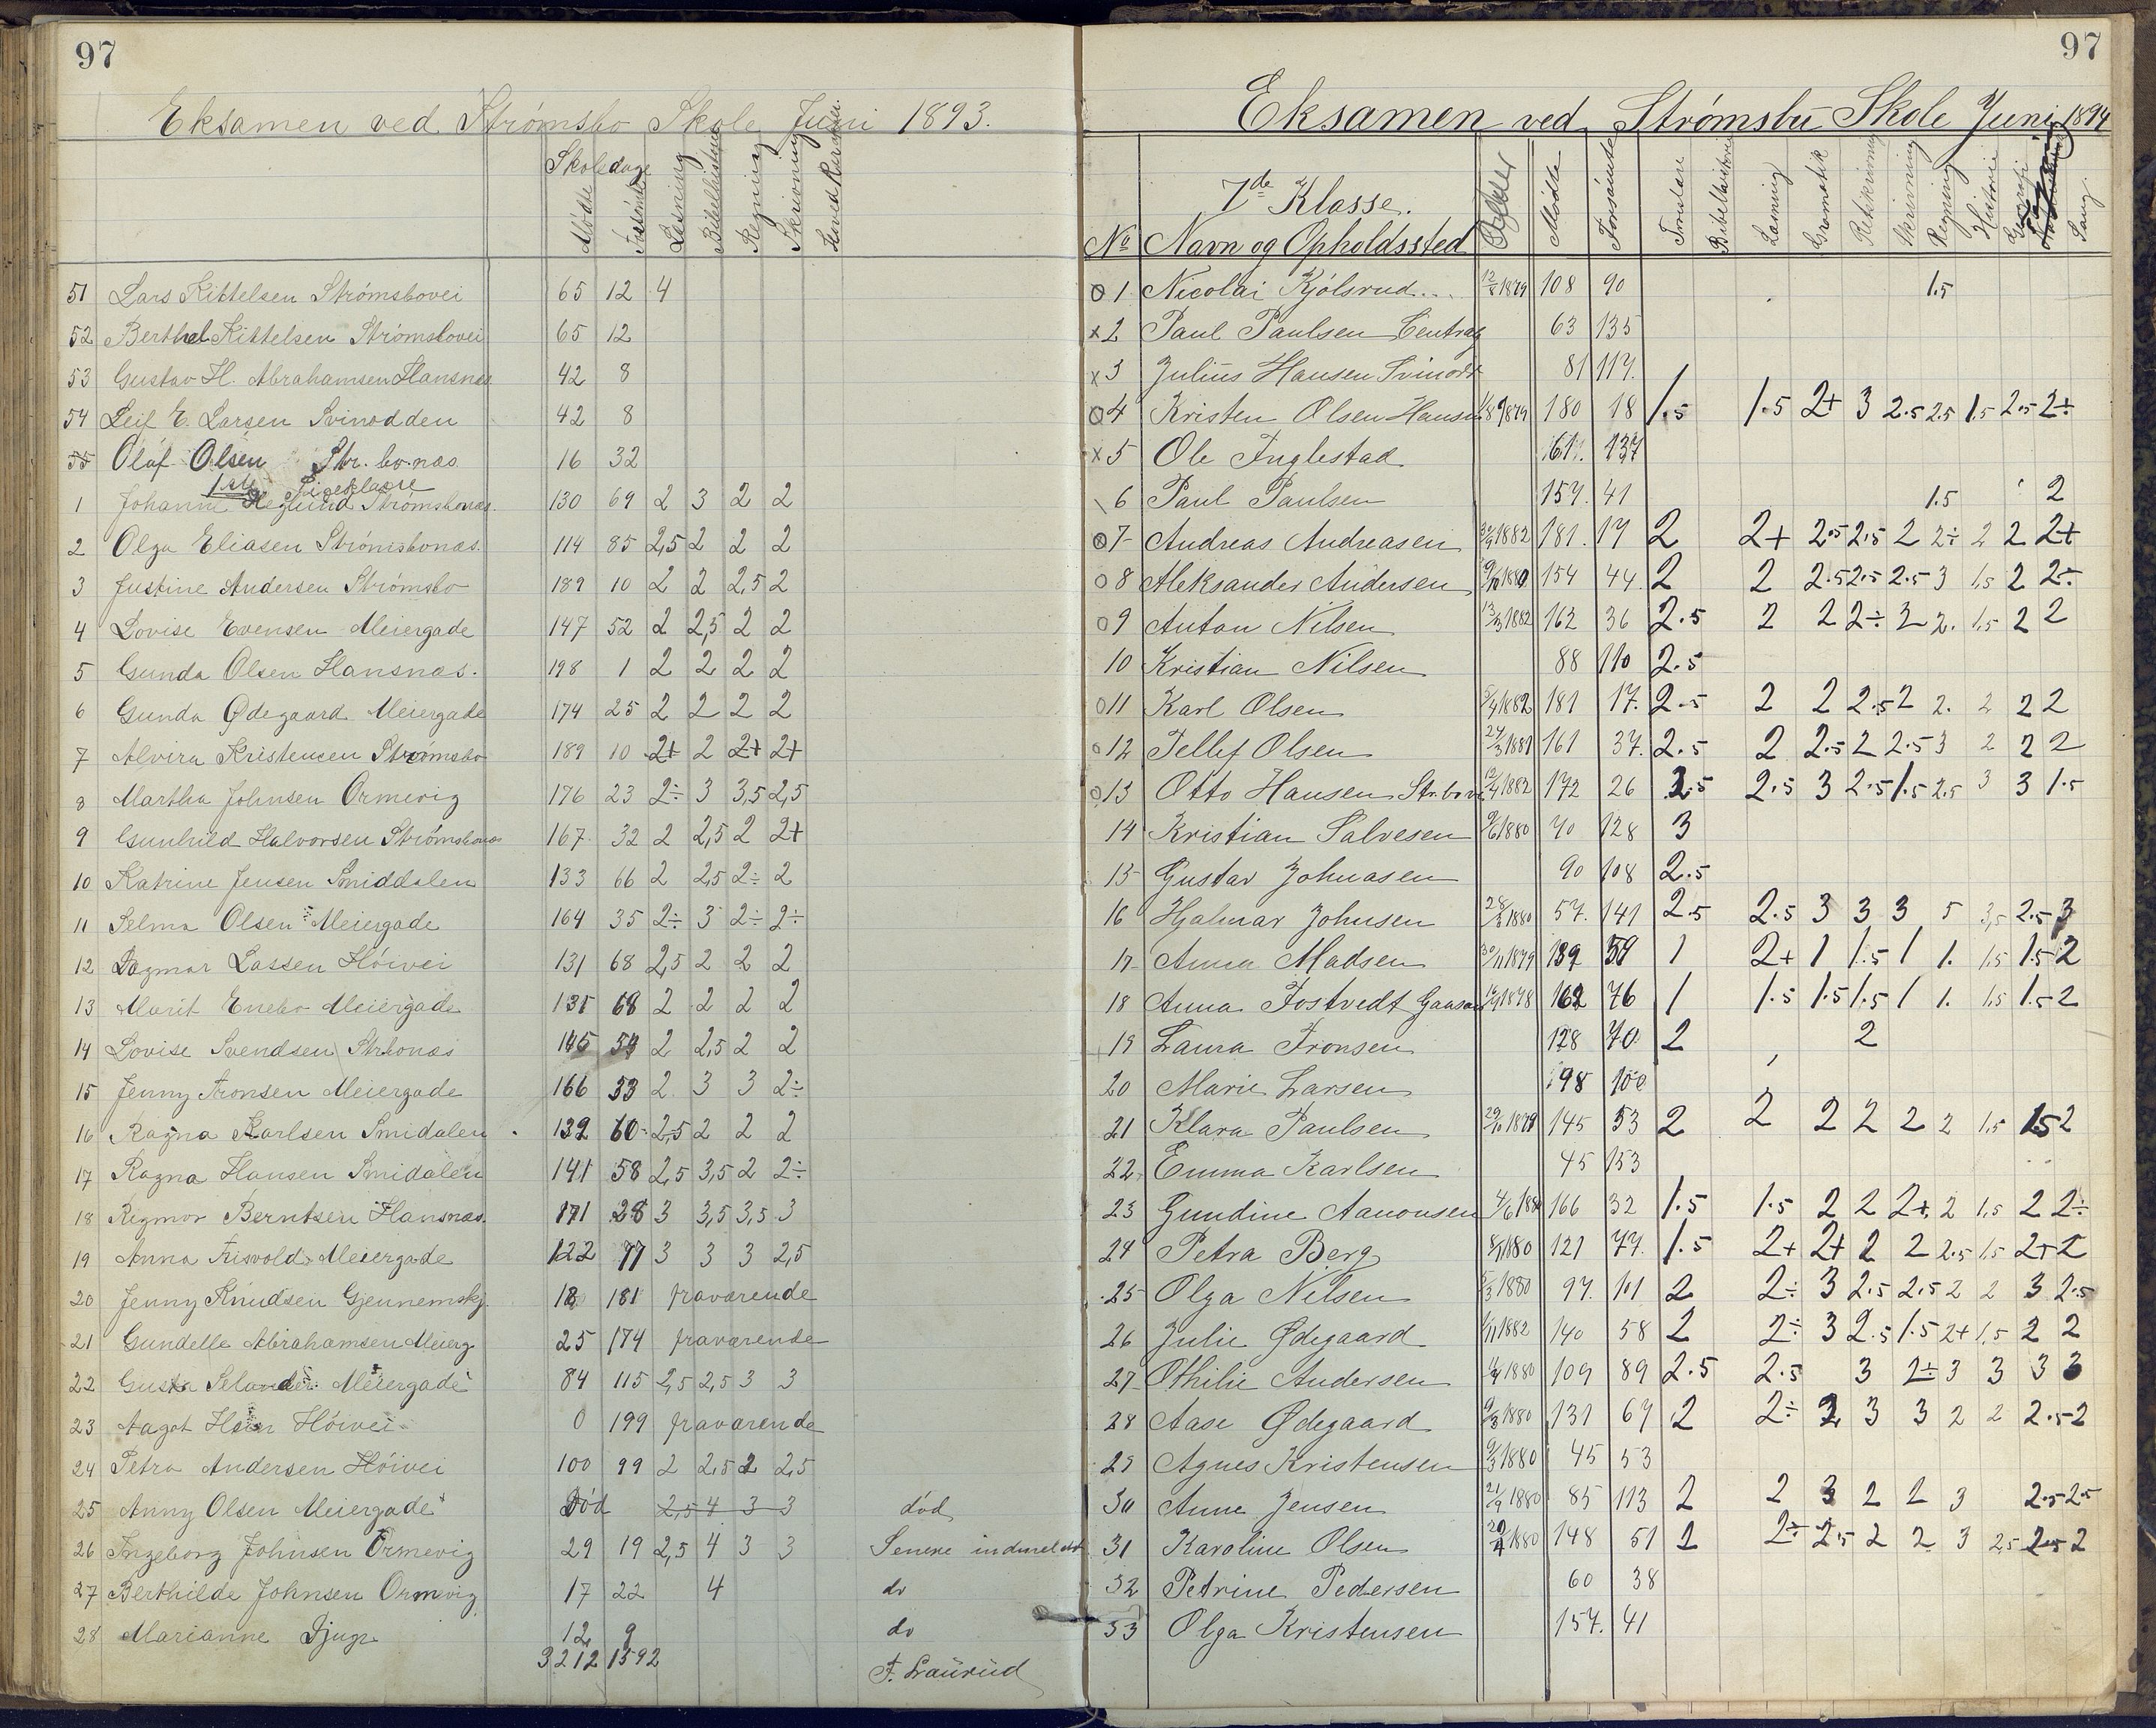 97
Eksamen ved Strømsbo Skole Juni 1893.
Skoledage
Mødte Forsømte Læsning Bibelhistorie Regning Skrivning
51 Lars Kittelsen Strømsbovei 65 12 4
52 Berthel Kittelsen Strømsbovei 65 12
53 Gustav H. Abrahamsen Hansnæs 42 8
54 Leif E. Larsen Svinodden 42 8
55 Olaf Olsen Str.bo.næs 16 32
1ste Pigeklasse
1 Johanne Heglund Strømsbonæs. 130 69 2 3 2 2
2 Olga Eliasen Strømsbonæs. 114 85 2,5 2 2 2
3 Justine Andersen Strømsbo 189 10 2 2 2,5 2
4 Lovise Evensen Meiergade 147 52 2 2,5 2 2
5 Gunda Olsen Hansnæs. 198 1 2 2 2 2
6 Gunda Ødegaard Meiergade 174 25 2 2 2 2
7 Alvira Kristensen Strømsbo 189 10 2+ 2 2+ 2+
8 Martha Johnsen Ormevig 176 23 2÷ 3 3,5 2,5
9 Gunhild Halvorsen Strømsbonæs 167 32 2 2,5 2 2+
10 Katrine Jensen Smiddalen 133 66 2 2,5 2÷ 2
11 Selma Olsen Meiergade 164 35 2÷ 3 2÷ 2÷
12 Dagmar Lassen Høivei 131 68 2,5 2 2 2
13 Marit Enebo Meiergade 131 68 2 2 2 2
14 Lovise Svendsen Strbonæs 145 54 2 2,5 2 2
15 Jenny Aronsen Meiergade 166 33 2 3 3 2÷
16 Ragna Karlsen Smidalen 139 60 2,5 2 2 2
17 Ragna Hansen Smidalen 141 58 2,5 3,5 2 2÷
18 Regmor Berntsen Hansnæs. 171 28 3 3,5 3,5 3
19 Anna Frisvold Meiergade 122 77 3 3 3 2,5
20 Jenny Knudsen Gjennemskj. 18 181 fraværende
21 Gundelle Abrahamsen Meierg 25 174 fraværende
22 Gusta Selander Meiergade 84 115 2,5 2,5 3 3
23 Aagot Høivei 0 199 fraværende
24 Petra Andersen Høivei 100 99 2 2,5 2 2,5
25 Anny Olsen Meiergade Død 2,5 4 3 3 død
26 Ingeborg Johnsen Ormevig 29 19 2,5 4 3 3 Senere indmeldt
27 Berthilde Johnsen Ormevig 17 22 4 do
28 Marianne 12 9 do
3212 1592
F. Laurud
97
Eksamen ved Strømsbu Skole Juni 1894
7de Klasse.
No Navn og Opholdssted Mødte Forsømte Troslære Bibelhistorie Læsning Gramatik Retskrivning Skrivning Regning Historie Geografi Sang
1 Nicolai Kjølsrud 1879 108 90 1.5
x 2 Paul Paulsen 63 135
x 3 Julius Hansen Svinodd 81 117.
4 Kristen Olsen Hansn 1879 180 18 1.5 1.5 2+ 3 2.5 2.5 1.5 2.5 2÷
x 5 Ole Fuglestad 61. 137
6 Paul Paulsen 157. 41 1.5 2
7 Andreas Andreasen 1882 181. 17 2 2+ 2.5 2.5 2 2÷ 2 2 2+
8 Aleksander Andersen 1880 154 44. 2 2 2.5 2.5 2.5 3 1.5 2 2÷
9 Anton Nilsen 13/3 1882 162 36 2.5 2 2 2÷ 2 2. 1.5 2 2
10 Kristian Nilsen 88 110 2.5
11 Karl Olsen 1882 181 17. 2.5 2 2 2.5 2 2. 2 2 2
12 Tellef Olsen 161 37. 2.5 2 2.5 2 2.5 3 2 2 2
13 Otto Hansen Str.bov 12/4 1882 172 26 2.5 2.5 3 2.5 1.5 2.5 3 3 1.5
14 Kristian Salvesen 1880 70 128 3
15 Gustav Johnasen 90 108 2.5
16 Hjalmar Johnsen 1880 57. 141 2.5 2.5 3 3 3 5 3,5 2.5 3
17 Anna Madsen 30/11 1879 139 59 1 2+ 1 1.5 1 1. 1.5 1.5 2
18 Anna Fostvedt 1878 162 76 1 1.5 1.5 1.5 1 1. 1.5 1.5 2
19 Laura Fronsen 128 70 2 2
20 Marie Larsen 98 100
21 Klara Paulsen 29/10 1879 145 53 2 2 2 2 2 2 1.5 1.5 2
22 Emma Karlsen 45 153
23 Gundine Aanonsen 166 32 1.5 1.5 2 2 2+ 2 1.5 2 2÷
24 Petra Berg 1880 121 77. 1.5 2+ 2+ 2 2 2.5 1.5 2+ 2
25 Olga Nilsen 1880 97. 101 2 2÷ 3 2.5 2.5 2 2 3 2.5
26 Julie Ødegaard 1882 140 58 2 2÷ 3 2.5 1.5 2+ 1.5 2 2
27 Othilie Andersen 1880 109 89 2.5 2.5 3 2÷ 3 3 3 3
28 Aase Ødegaard 1880 131 67 2 2÷ 2 3 3 2 2 2.5 2
29 Agnes Kristensen 9/3 1880 45 53
30 Anne Jensen 21/9 1880 85 113 2 2 3 2 2 3 2.5 2.5
31 Karoline Olsen 1880 148 51 2 2÷ 2.5 2 2 3 2.5 2.5 2
32 Petrine Pedersen 60 38
33 Olga Kristensen 157. 41